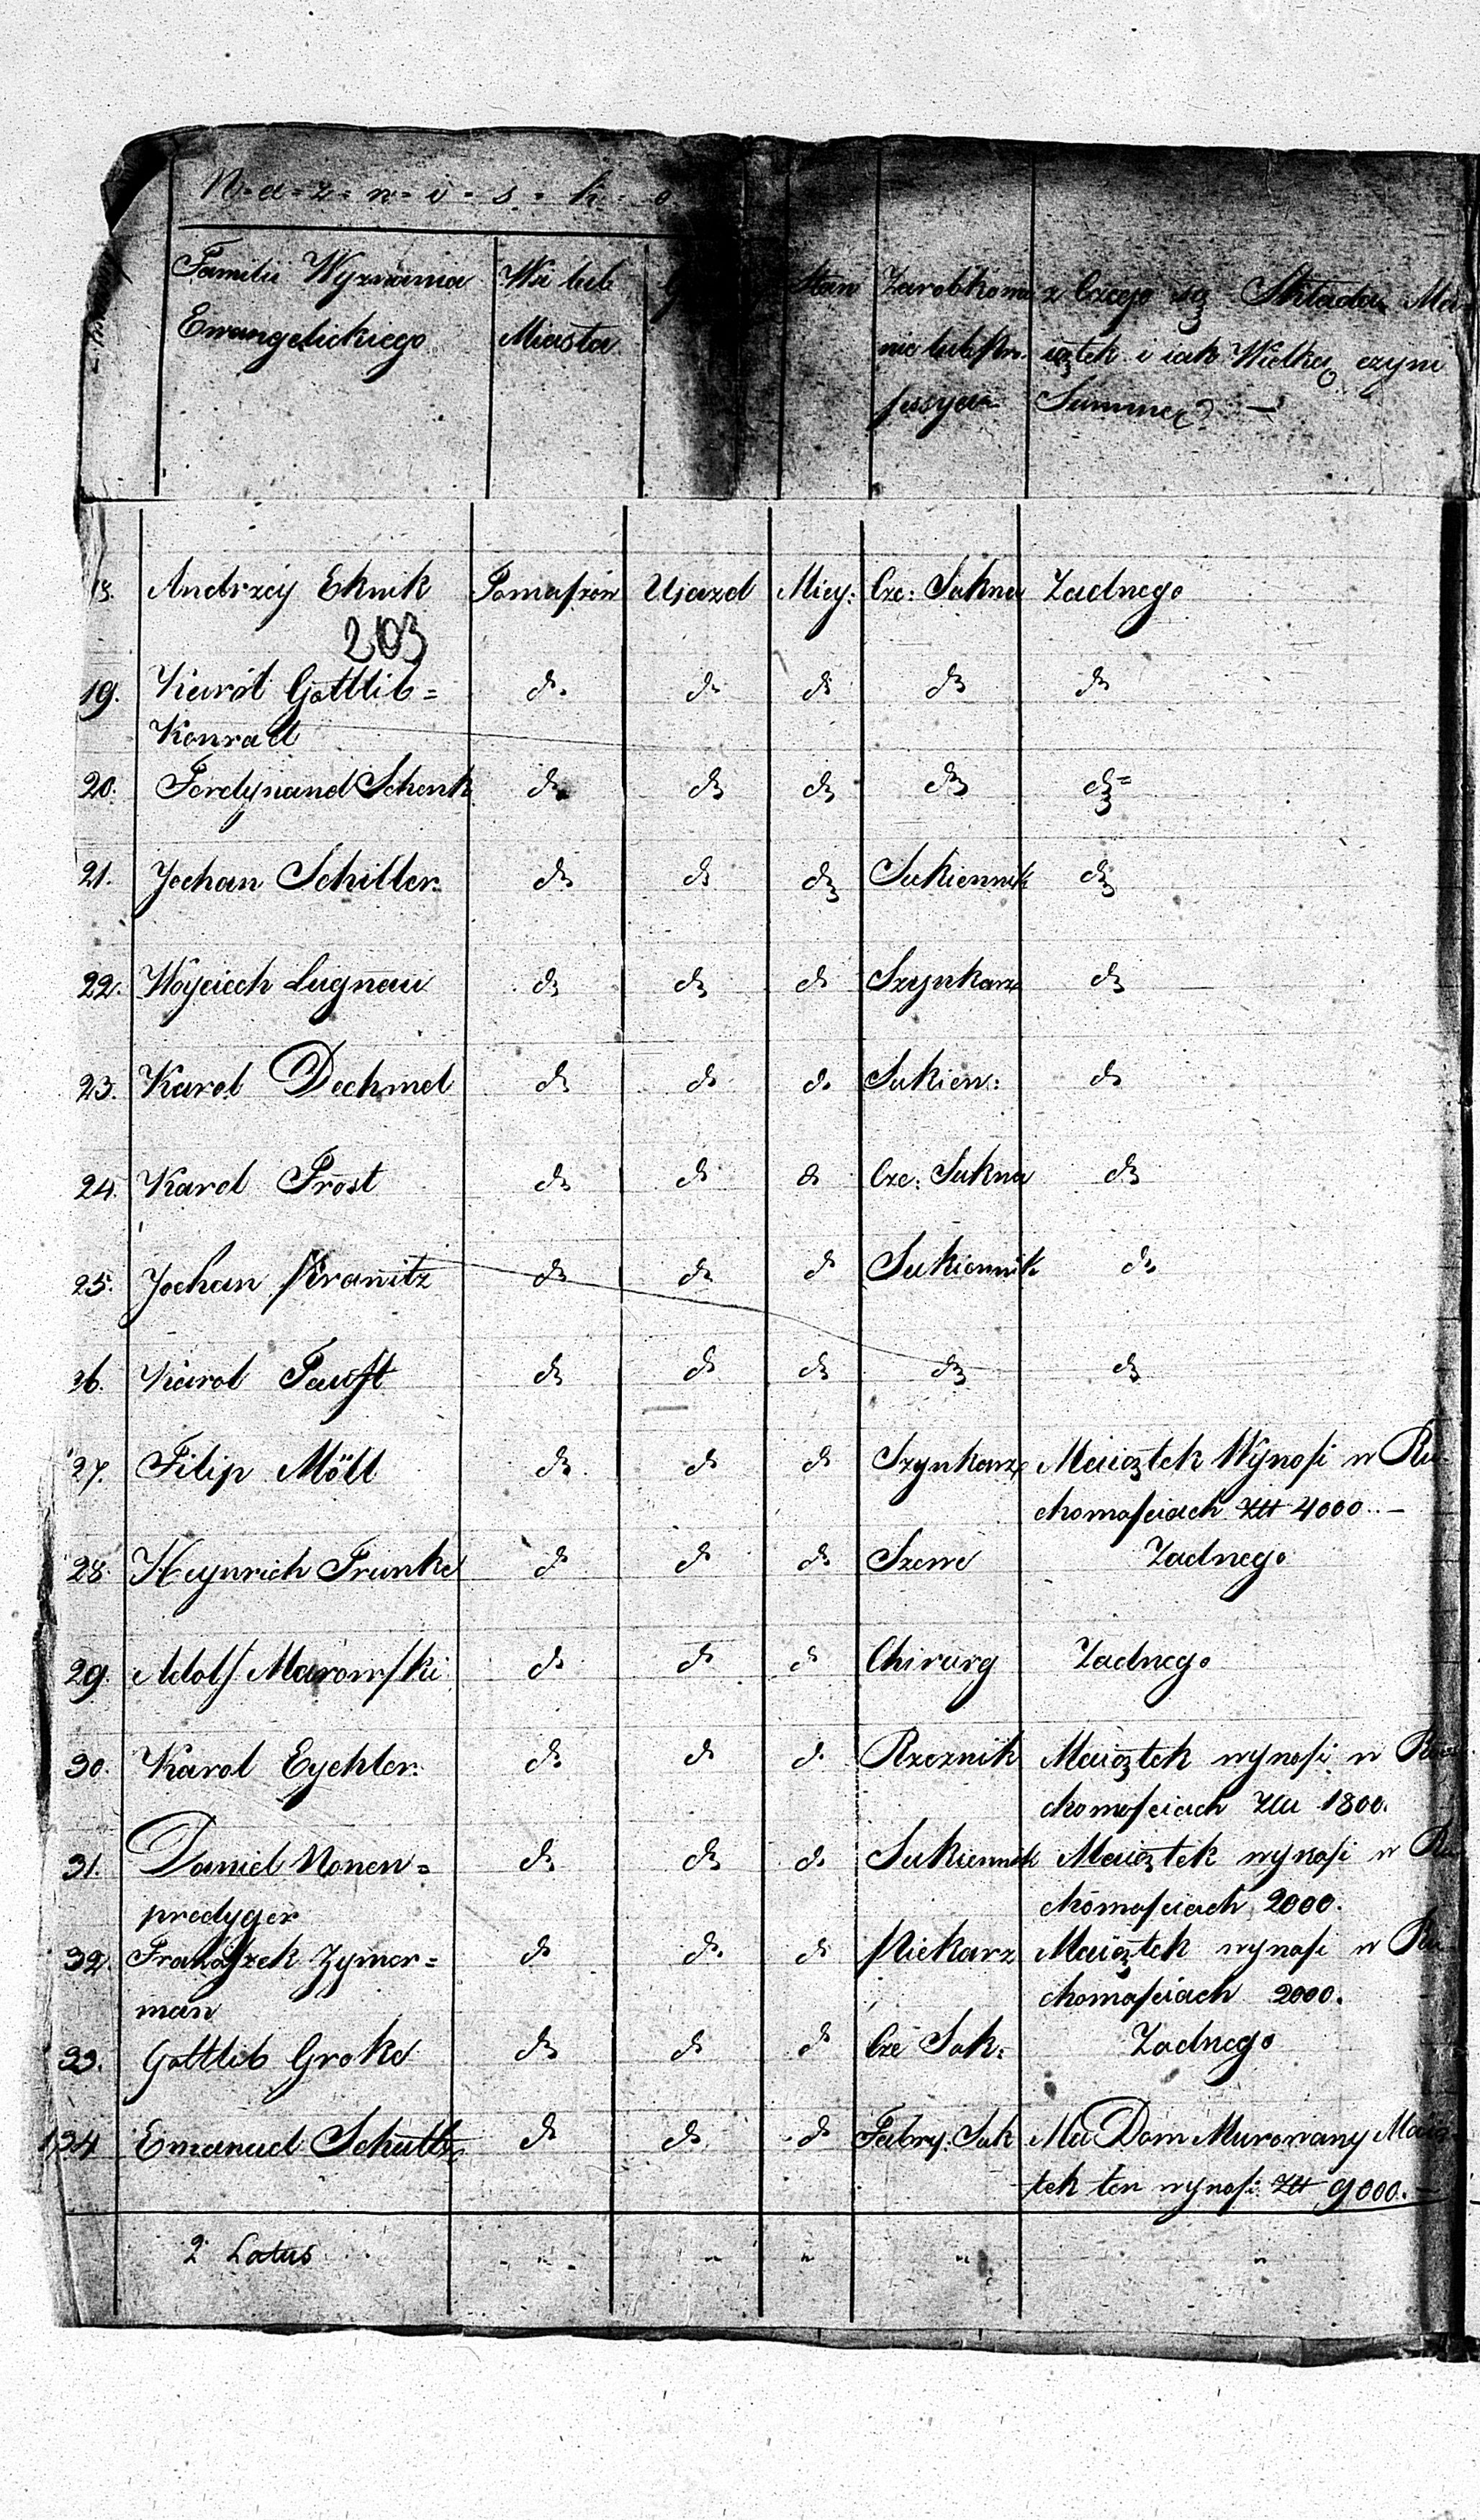 N=a=z=w=i=s=k=o
Familii Wyznania Wsi lub Stan Zarobkowa z Czego się Składa Ma
Ewangelickiego Miasta nie lub Pro iątek i iak Wielką czyni
fessya Summę? —
18. Andrzéy Eknik Tomaszów Ujazd Miey: Cze: Sukna Zadnego
203
19. Karól Gottlib= do do do do do
Konrad
20. Ferdynand Schenk do do do do do=
21. Johan Schiller do do do Sukiennik do
22. Woyciech Lugnau do do do Szynkarz do
23. Karol Dechmel do do do Sukien: do
24. Karol Prost do do do Cze: Sukna do
25. Johan Kranitz do do do Sukiennik do
26. Karol Faust do do do do do
27. Filip Möll do do do Szynkarz Maiątek Wynosi w Ru
chomosciach Złł 4000.—
28. Heynrich Frunke do do do Szewc Zadnego
29. Adolf Marowski do do do Chirurg Zadnego
30. Karol Eychler do do do Rzeznik Maiątek wynosi w Ru
chomosciach Złł 1800.
31. Daniel Nonen= do do do Sukiennik Maiątek wynosi w Ru
predyger chomosciach 2000.
32. Franciszek Zymer= do do do Piekarz Maiątek wynosi w Ru
man chomosciach 2000.
33. Gottlib Groke do do do Cze Suk: Zadnego
134 Emanuel Schultz do do do Fabry: Suk Ma Dom Murowany Maią
tek ten wynosi Złł 9000.—
2 Latus " " " " "